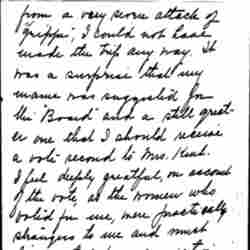 from a very severe attack of
"grippe", I could not have
made the trip any way. It
was a surprise that my
name was suggested for
the "Board" and a still great-
er one that I should receive
a vote second to Mrs.
I feel deeply greatful, on account
of the vote, as the women who
voted for me, were practically
strangers to me and must